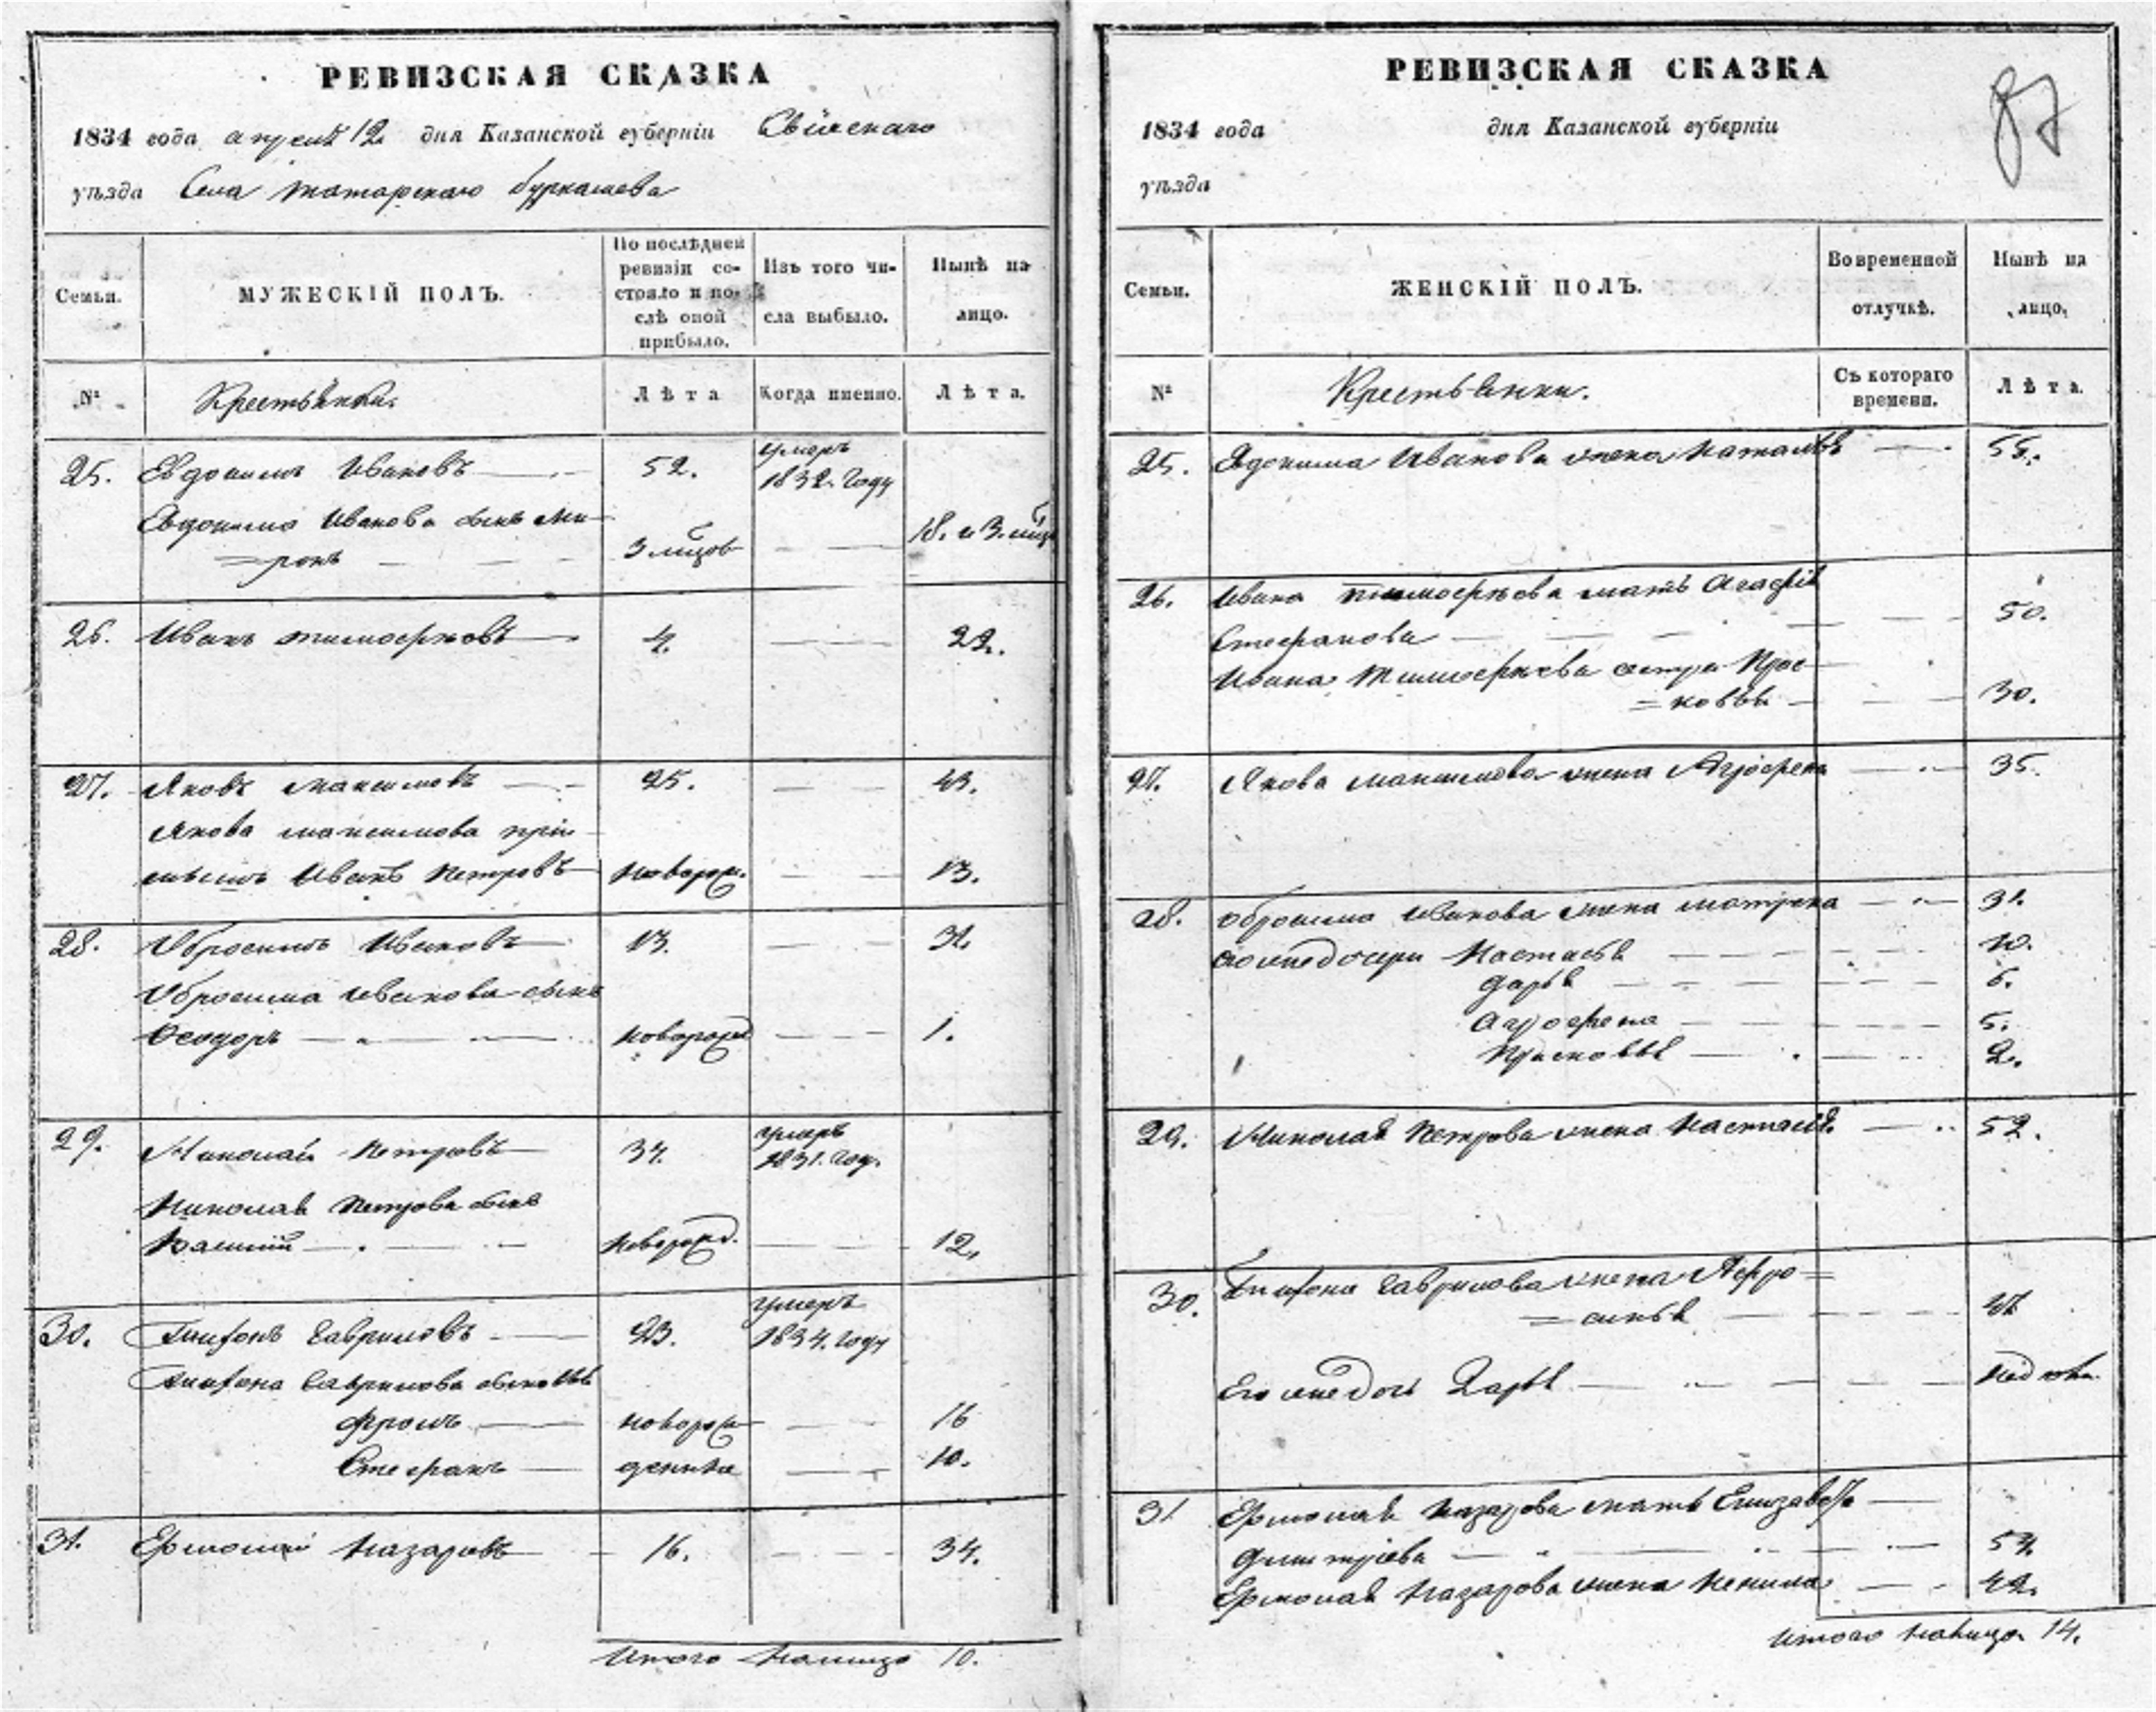 РЕВИЗСКАЯ СКАЗКА
1834 года апреля 12 дня Казанской губерніи Свіяскаго
уѣзда Села татарскаго буркашева
Семьи.
МУЖЕСКІЙ ПОЛЪ.
По послѣдней ревизіи состояло и послѣ оной прибыло.
Изъ того числа выбыло.
Нынѣ на лицо.
№
Крестьянъ
Лѣта
Когда именно.
Лѣта.
25. Евдокимъ Ивановъ 52. умеръ 1832. году
Евдокима Иванова сынъ Ми-
=ронъ 3 мцов 18. и 3. мцв
26. Иванъ тимофѣевъ 4. 22.
27. Яковъ максимовъ 25. 43.
Якова максимова прій
мышъ Иванъ Петровъ новорож. 13.
28. Обросимъ Ивановъ 13. 31.
Обросима Иванова сынъ
Ѳеодоръ новорожд 1.
29. Николай Петровъ 34. умеръ 1831. год.
Николая Петрова сынъ
новорожд. 12.
30. Гавриловъ 23. умеръ 1834. году
Гаврилова сыновья
Фролъ новорож 16
Стефанъ денные 10.
31. Ермолай Назаровъ 16. 34.
Итого налицо 10.
РЕВИЗСКАЯ СКАЗКА
87
1834 года дня Казанской губерніи
уѣзда
Семьи.
ЖЕНСКІЙ ПОЛЪ.
Во временной отлучкѣ.
Нынѣ на лицо.
№
Крестьянки.
Съ котораго времени.
Лѣта.
25. Евдокима Иванова жена Наталья 55.
26. Ивана тимофѣева мать Агафія
Стефанова 50.
Ивана Тимофѣева сестра Прас-
=ковья 30.
27. Якова максимова жена Агрофена 35.
28. Обросима Иванова жена матрена 31.
дочери Настасья 10.
Дарья 6.
Агрофена 5.
Прасковья 2.
29. Николая Петрова жена Настасья. 52.
30. Гаврилова жена Афро=
=синья
Его же дочь Дарья
31 Ермолая Назарова мать Елизавета
Дмитріева 54.
Ермолая Назарова жена Ненила 42.
Итого налицо 14.